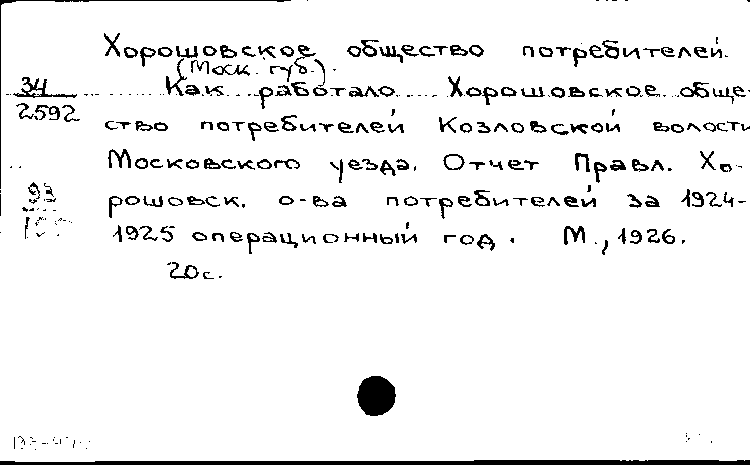 Хорошовское общество потребителей.
(Моск. губ.).
34
2592
Как работало Хорошовское обще-
ство потребителей Козловской волости
Московского уезда. Отчет Правл. Хо-
рошовск. о-ва потребителей за 1924-
1925 операционный год. М., 1926.
20с.
93